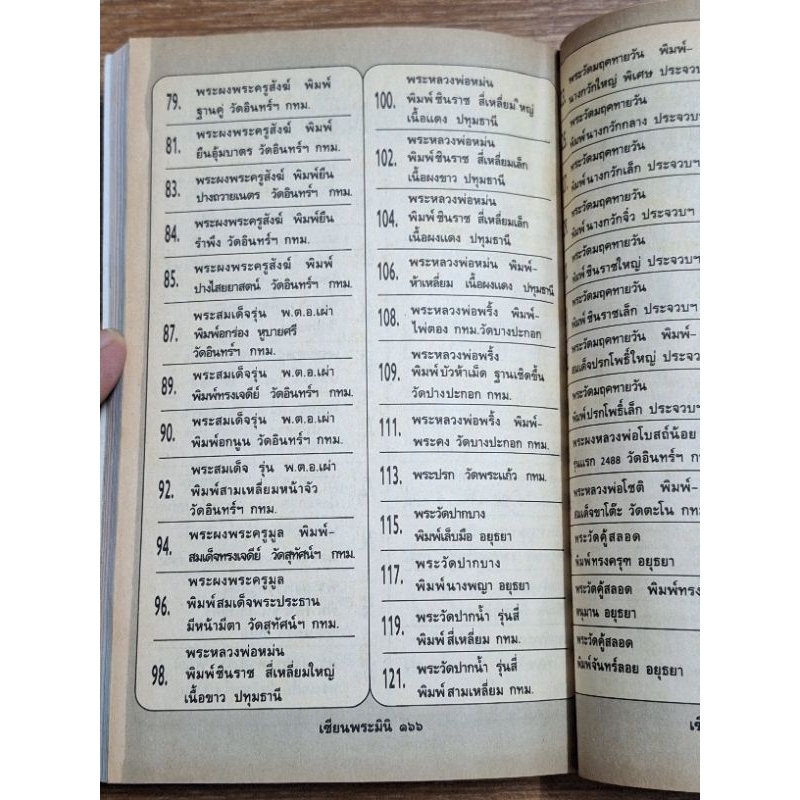 79. พระผงพระครูสังฆ์ พิมพ์
ฐานคู่ วัดอินทร์ฯ กทม.
81. พระผงพระครูสังฆ์ พิมพ์
ยืนอุ้มบาตร วัดอินทร์ฯ กทม.
83. พระผงพระครูสังฆ์ พิมพ์ยืน
ปางถวายเนตร วัดอินทร์ฯ กทม.
84. พระผงพระครูสังฆ์ พิมพ์ยืน
รำพึง วัดอินทร์ฯ กทม.
85. พระผงพระครูสังฆ์ พิมพ์
ปางไสยยาสตน์ วัดอินทร์ฯ กทม.
87. พระสมเด็จรุ่น พ.ต.อ.เผ่า
พิมพ์อกร่อง หูบายศรี
วัดอินทร์ฯ กทม.
89. พระสมเด็จรุ่น พ.ต.อ.เผ่า
พิมพ์ทรงเจดีย์ วัดอินทร์ฯ กทม.
90. พระสมเด็จรุ่น พ.ต.อ.เผ่า
พิมพ์อกนูน วัดอินทร์ฯ กทม.
92. พระสมเด็จ รุ่น พ.ต.อ.เผ่า
พิมพ์สามเหลี่ยมหน้าจั่ว
วัดอินทร์ฯ กทม.
94. พระผงพระครูมูล พิมพ์-
สมเด็จทรงเจดีย์ วัดสุทัศน์ฯ กทม.
96. พระผงพระครูมูล
พิมพ์สมเด็จพระประธาน
มีหน้ามีตา วัดสุทัศน์ฯ กทม.
98. พระหลวงพ่อหม่น
พิมพ์ชินราช สี่เหลี่ยมใหญ่
เนื้อขาว ปทุมธานี
100. พระหลวงพ่อหม่น
พิมพ์ชินราช สี่เหลี่ยมใหญ่
เนื้อแดง ปทุมธานี
102. พระหลวงพ่อหม่น
พิมพ์ชินราช สี่เหลี่ยมเล็ก
เนื้อผงขาว ปทุมธานี
104. พระหลวงพ่อหม่น
พิมพ์ชินราช สี่เหลี่ยมเล็ก
เนื้อผงแดง ปทุมธานี
106. พระหลวงพ่อหม่น พิมพ์-
ห้าเหลี่ยม เนื้อผงแดง ปทุมธานี
108. พระหลวงพ่อพริ้ง พิมพ์-
ไพ่ตอง กทม.วัดบางปะกอก
109. พระหลวงพ่อพริ้ง
พิมพ์บัวห้าเม็ด ฐานเชิดขึ้น
วัดปางปะกอก กทม.
111. พระหลวงพ่อพริ้ง พิมพ์-
พระคง วัดบางปะกอก กทม.
113. พระปรก วัดพระแก้ว กทม.
115. พระวัดปากบาง
พิมพ์เล็บมือ อยุธยา
117. พระวัดปากบาง
พิมพ์นางพญา อยุธยา
119. พระวัดปากน้ำ รุ่นสี่
พิมพ์สี่เหลี่ยม กทม.
121. พระวัดปากน้ำ รุ่นสี่
พิมพ์สามเหลี่ยม กทม.
เซียนพระมินิ ๑๖๖
พระวัดมฤคทายวัน พิมพ์-
นางกวักใหญ่ พิเศษ ประจวบ
พระวัดมฤคทายวัน
พิมพ์นางกวักกลาง ประจวบ
พระวัดมฤคทายวัน
พิมพ์นางกวักเล็ก ประจวบฯ
พระวัดมฤคทายวัน
พิมพ์นางกวักจิ๋ว ประจวบฯ
พระวัดมฤคทายวัน
พิมพ์ชินราชใหญ่ ประจวบ
พระวัดมฤคทายวัน
พิมพ์ชินราชเล็ก ประจวบฯ
พระวัดมฤคทายวัน พิมพ์-
สมเด็จปรกโพธิ์ใหญ่ ประจว
พระวัดมฤคทายวัน
พิมพ์ปรกโพธิ์เล็ก ประจวบฯ
พระผงหลวงพ่อโบสถ์น้อย
รุ่นแรก 2488 วัดอินทร์ฯ ก
พระหลวงพ่อโชติ พิมพ์-
สมเด็จขาโต๊ะ วัดตะโน กทม
พระวัดคู้สลอด
พิมพ์ทรงครุฑ อยุธยา
พระวัดคู้สลอด พิมพ์ทรง
หนุมาน อยุธยา
พระวัดคู้สลอด
พิมพ์จันทร์ลอย อยุธยา